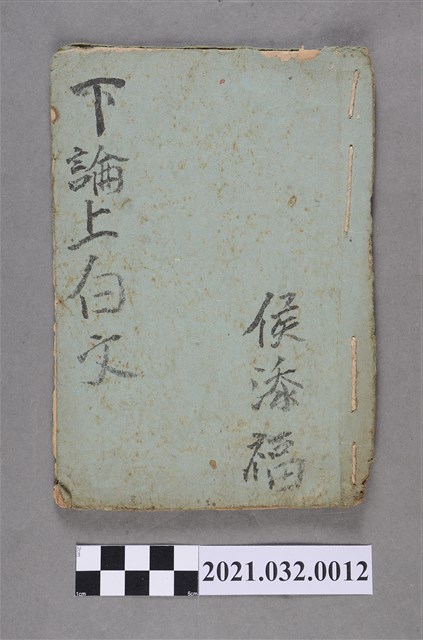 下論上白文
侯添福
2021.032.0012
1cm
5cm